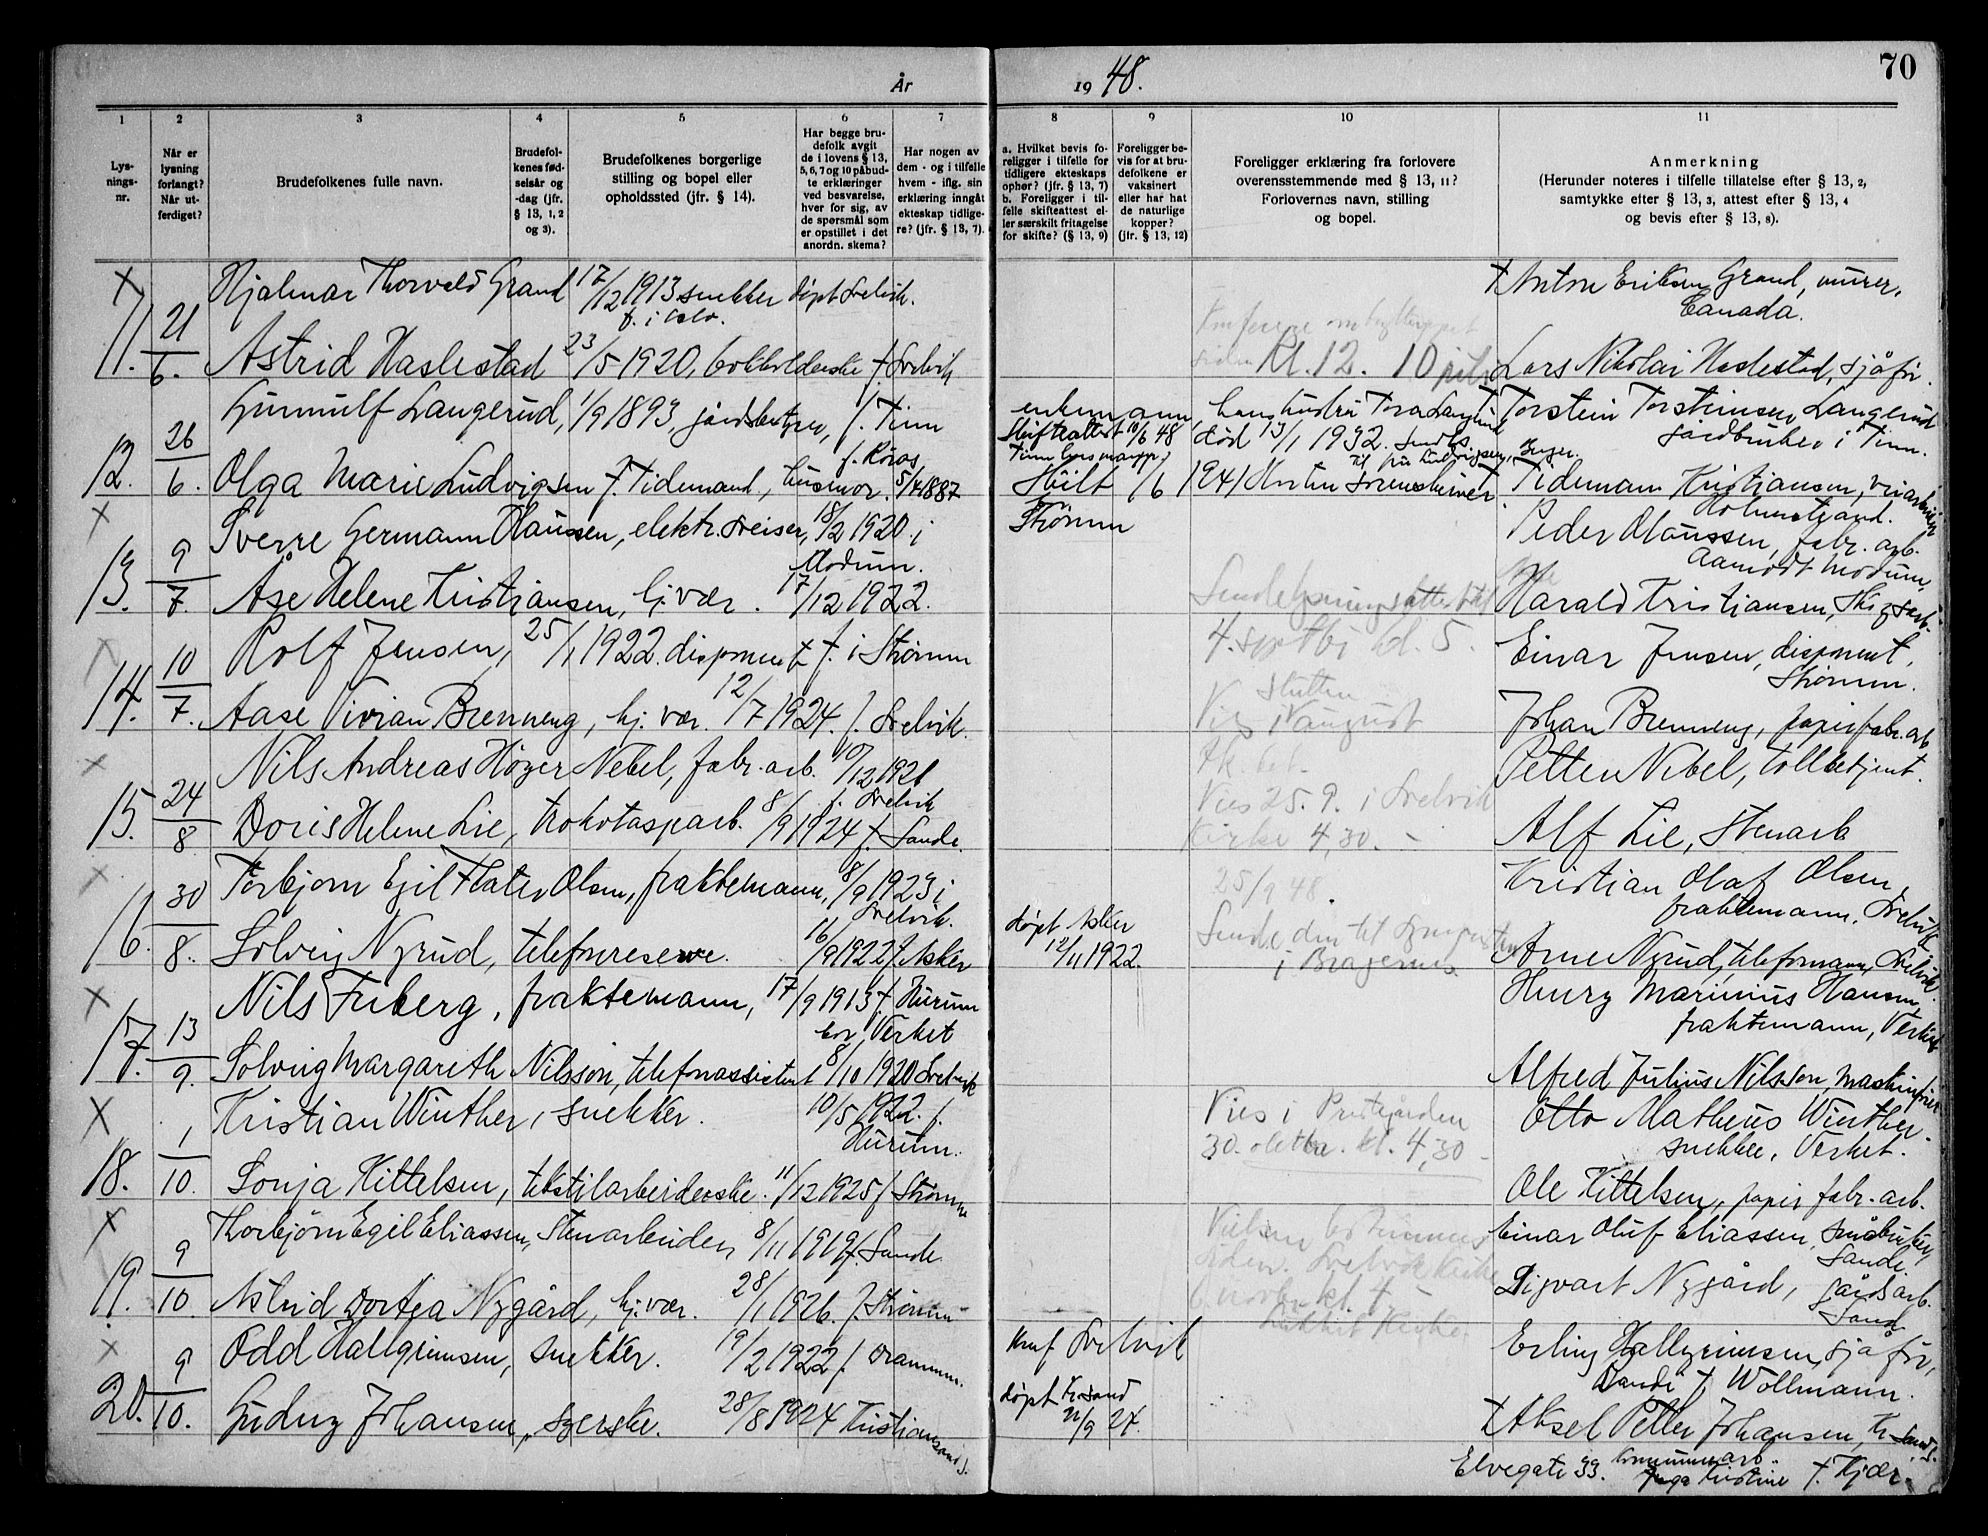 År
1948.
70
1
2
3
4
5
6
7
8
9
10
11
Lys-
nings-
nr.
Når er
lysning
forlangt?
Når ut-
ferdiget?
Brudefolkenes fulle navn.
Brudefol-
kenes fød-
selsår og
-dag (jfr.
§ 13, 1, 2
og 3).
Brudefolkenes borgerlige
stilling og bopel eller
opholdssted (jfr. § 14).
Har begge bru-
defolk avgit
de i lovens § 13,
5, 6, 7 og 10 påbud-
te erklæringer
ved besvarelse,
hver for sig, av
de spørsmål som
er opstillet i det
anordn. skema?
Har nogen av
dem - og i tilfelle
hvem - iflg. sin
erklæring inngåt
ekteskap tidlige-
re? (jfr. § 13, 7).
a. Hvilket bevis fo-
religger i tilfelle for
tidligere ekteskaps
ophør? (jfr. § 13, 7)
b. Foreligger i til-
felle skifteattest el-
ler særskilt fritagelse
for skifte? (§ 13, 9)
Foreligger be-
vis for at bru-
defolkene er
vaksinert
eller har hat
de naturlige
kopper?
(jfr. § 13, 12)
Foreligger erklæring fra forlovere
overensstemmende med § 13, 11?
Forlovernes navn, stilling
og bopel.
Anmerkning
(Herunder noteres i tilfelle tillatelse efter § 13, 2,
samtykke efter § 13, 3, attest efter § 13, 4
og bevis efter § 13, 8).
x Hjalmar Thorvald Grand 17/12 1913 snekker døpt Svelvik.
f. i Oslo.
† Anton Eriksen Grand, murer,
Canada.
11. 21/6. Astrid Haslestad 23/5 1920, bokholderske f. Svelvik
Kl. 12. 10
Lars Nikolai Haslestad, sjåfør.
Gunnulf Langerud, 1/9 1893, gårdsbestyrer, f. Tinn
enkemann, hans hustru Tora Langerud
† Torstein Torsteinsen Langerud
Skifteattest 10/6 48 død 13/1 1932.
gårdbruker i Tinn.
12. 26/6. Olga Marie Ludvigsen f. Tidemand, husmor. f. Røros 5/4 1887
Skilt 1/6 1941
† Tidemann Kristiansen,
Holmestrand.
x Sverre Germann Olaussen, elektr. sveiser, 18/2 1920 i
Modum.
Strømm
Peder Olaussen, fabr. arb.
Aamodt Modum,
13. 9/7 Åse Helene Kristiansen, hj. vær. 17/12 1922.
Sende lysningsattest til
Harald Kristiansen,
x Rolf Jensen, 25/1 1922. disponent f. i Strømm
4. sept. kl. 5.
Einar Jensen, disponent,
Strømm.
14. 10/7. Aase Vivian Brenneng, hj. vær. 12/7 1924. f. Svelvik.
slutten
Vies i august
Johan Brenneng, papirfabr. arb.
x Nils Andreas Høyer Nebel, fabr. arb. 10/12 1921
f. Svelvik
Petter Nebel, tollbetjent.
15. 24/8 Doris Helene Lie, trikotasjearb. 8/9 1924 f. Sande.
Vies 25. 9. i Svelvik
Kirke 4,30. -
Alf Lie, Stenarb
x Torbjørn Egil Flaten Olsen, fraktemann, 8/9 1923 i
Svelvik.
25/9 48.
Kristian Olaf Olsen,
fraktemann. Svelvik
16. 30/8. Solveig Nyrud, telefonreserve. 16/9 1922 f. Asker
døpt Asker
12/11 1922.
i Bragernes
Arne Nyrud, telefonmann, Svelvik.
x Nils Friberg, fraktemann, 17/9 1913 f. Hurum
bor Verket
Henry Marinius Hansen,
fraktemann, Verket
17. 13/9. Solveig Margareth Nilsson, telefonassistent 8/10 1920 Svelvik
Alfred Julius Nilsson,
x Kristian Winther, snekker. 10/5 1922. f.
Hurum.
Vies i Prestegården
30. oktbr. kl. 4,30 -
Otto Matheus Winther.
snekker, Verket.
18. 1/10. Sonja Kittelsen, tekstilarbeiderske. 11/12 1925 f. Strømm
Ole Kittelsen, papir fabr. arb.
x Thorbjørn Egil Eliassen, Stenarbeider, 8/11 1919 f. Sande
Vielsen bestemmes
Svelvik Kirke
Einar Oluf Eliassen, småbruker,
Sande.
19. 9/10. Astrid Dortea Nygård, hj. vær. 28/1 1926. f. Strømm
6 novbr. kl. 4,
Sigvart Nygård, gårdsarb.
Sande
x Odd Hallgrimsen, snekker. 19/2 1922 f. Drammen.
Konf Svelvik
Erling Hallgrimsen, sjåfør,
Sande f. Wollmann.
20. 9/10. Gudny Johansen, syerske. 28/8 1924 Kristiansand S.
døpt Kr.sand
21/9 24.
† Aksel Petter Johansen, Kr. Sand S.
Elvegate 33. kommunearb.
Inga Kristine f. Kjær.